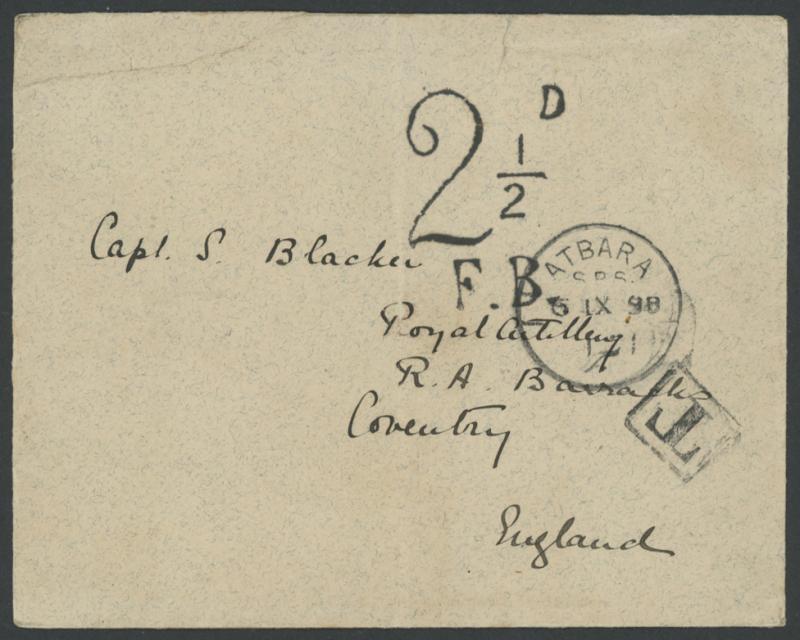 2 1/2 D
F.B.
ATBARA
S.P.S.
5 IX 98
T
Capt. S. Blacker
Royal Artillery
R.A. Barracks
Coventry
England